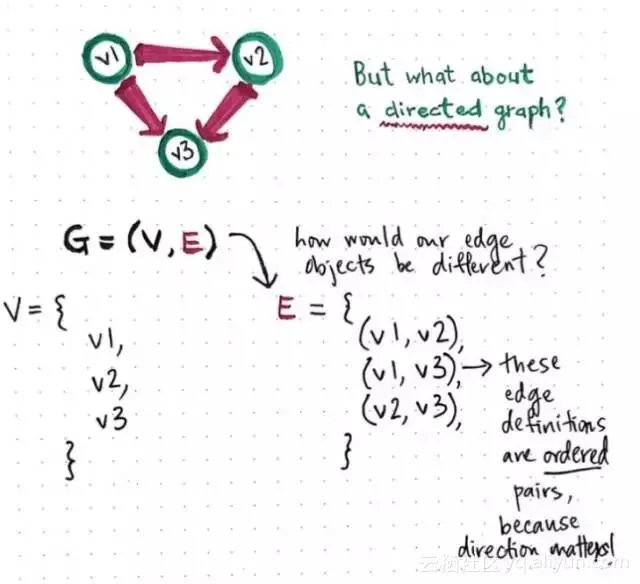 v1
v2
v3
But what about
a directed graph?
G = (V, E)
how would our edge
objects be different?
V = {
v1,
v2,
v3
}
E = {
(v1, v2),
(v1, v3), → these
(v2, v3),
edge
definitions
are ordered
pairs,
because
direction matters!
}
云栖社区 yq.aliyun.com